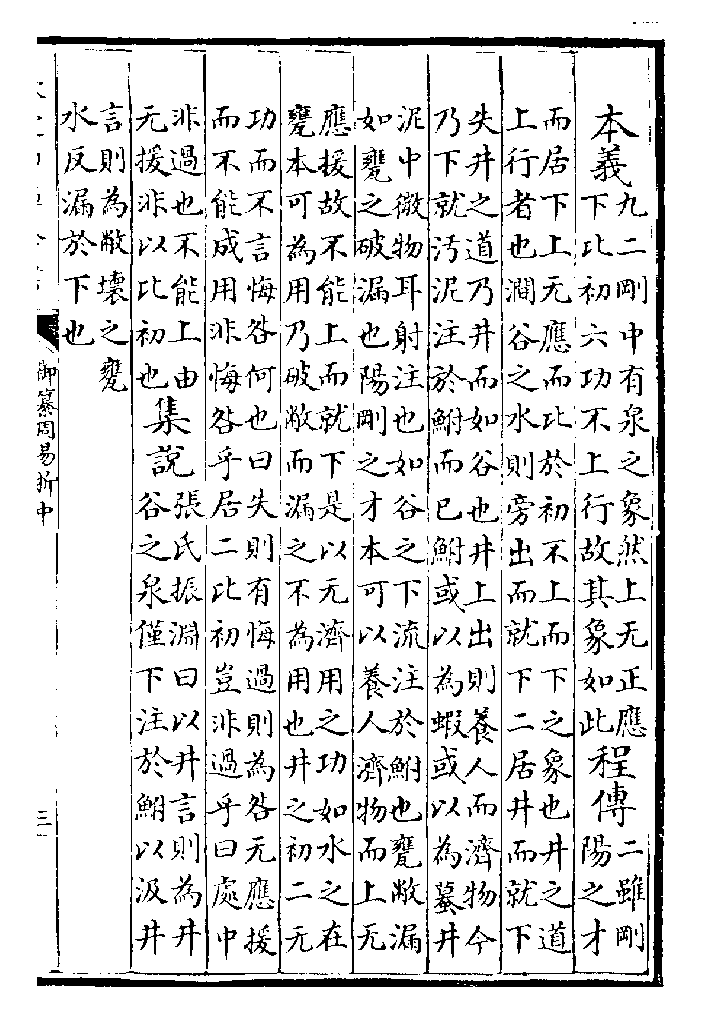 本義九二剛中有泉之象然上无正應
下比初六功不上行故其象如此
程傳二雖剛
陽之才
而居下上无應而比於初不上而下之象也井之道
上行者也澗谷之水則旁出而就下二居井而就下
失井之道乃井而如谷也井上出則養人而濟物今
乃下就汚泥注於鮒而已鮒或以為蝦或以為蟇井
泥中微物耳射注也如谷之下流注於鮒也甕敝漏
如甕之破漏也陽剛之才本可以養人濟物而上无
應援故不能上而就下是以无濟用之功如水之在
甕本可為用乃破敝而漏之不為用也井之初二无
功而不言悔咎何也曰失則有悔過則為咎无應援
而不能成用非悔咎乎居二比初豈非過乎曰處中
非過也不能上由
无援非以比初也
集說張氏振淵曰以井言則為井
谷之泉僅下注於鮒以汲井
言則為敝壞之甕
水反漏於下也
御纂周易折中
三